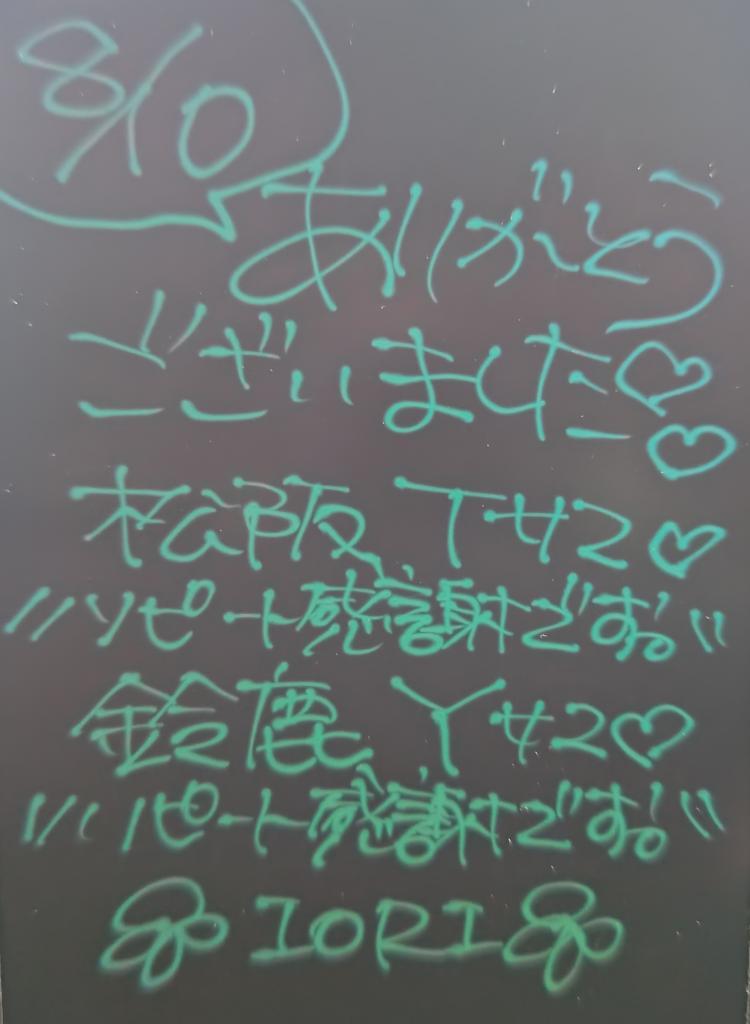 8/10
ありがとう
ございました♡♡
松阪 Tサマ♡
〃リピート感謝です〃
鈴鹿 Yサマ♡
〃リピート感謝です〃
IORI